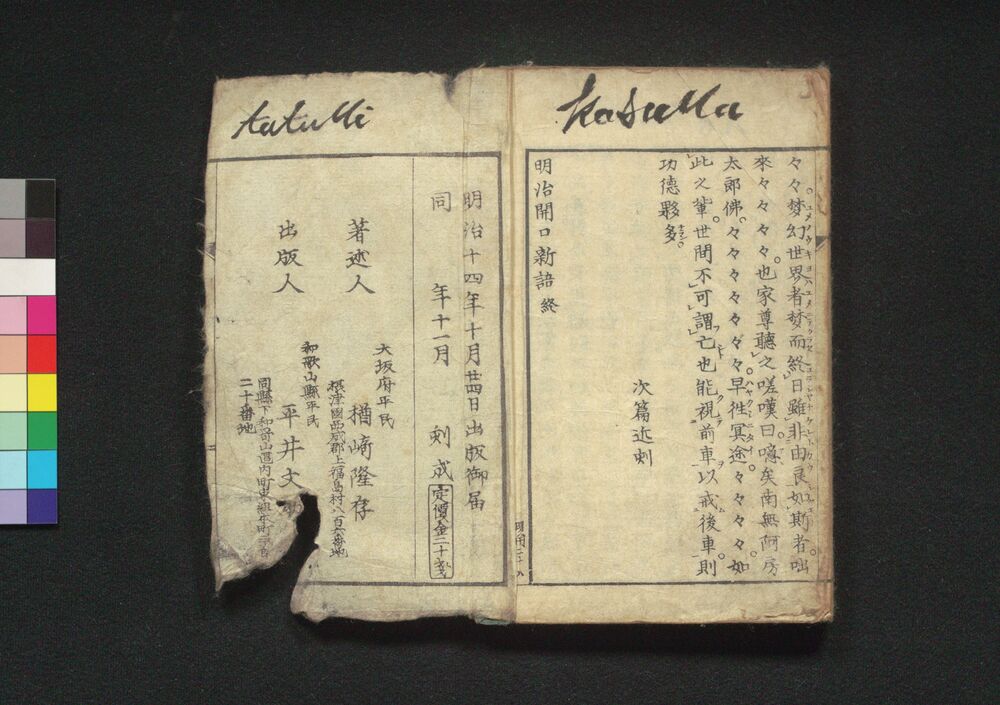 kasuMa
々々梦幻世界者梦而終日雖非由良如斯者咄
來々々々也家尊聽之嗟嘆曰噫矣南無阿房
太郎佛々々々々々々早徃冥途々々々々如
此之輩世間不可謂亡也能視前車以戒後車則
功德夥多
次篇近刻
明治開口新語 終
tatuMi
明治十四年十月廿四日出版御届
同 年十一月 刻成
定價金二十戔
大坂府平民
著述人 楢﨑隆存
摂津國西成郡上福島村八百六番地
和歌山縣平民
出版人 平井文
同縣下和哥山區内町
二十番地